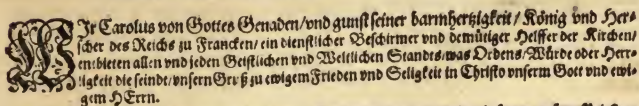 WIr Carolus von Gottes Genaden/vnd gunst seiner barmhertzigkeit/König vnd Her-
scher des Reichs zu Francken/ein dienstlicher Beschirmer vnd demütiger Helffer der Kirchen/
entbieten allen vnd jeden Geistlichen vnd Weltlichen Standes/was Ordens/Würde oder Herr-
ligkeit die seindt/vnsern Gruß zu ewigem Frieden vnd Seligkeit in Christo vnserm Gott vnd ewi-
gem HErrn.